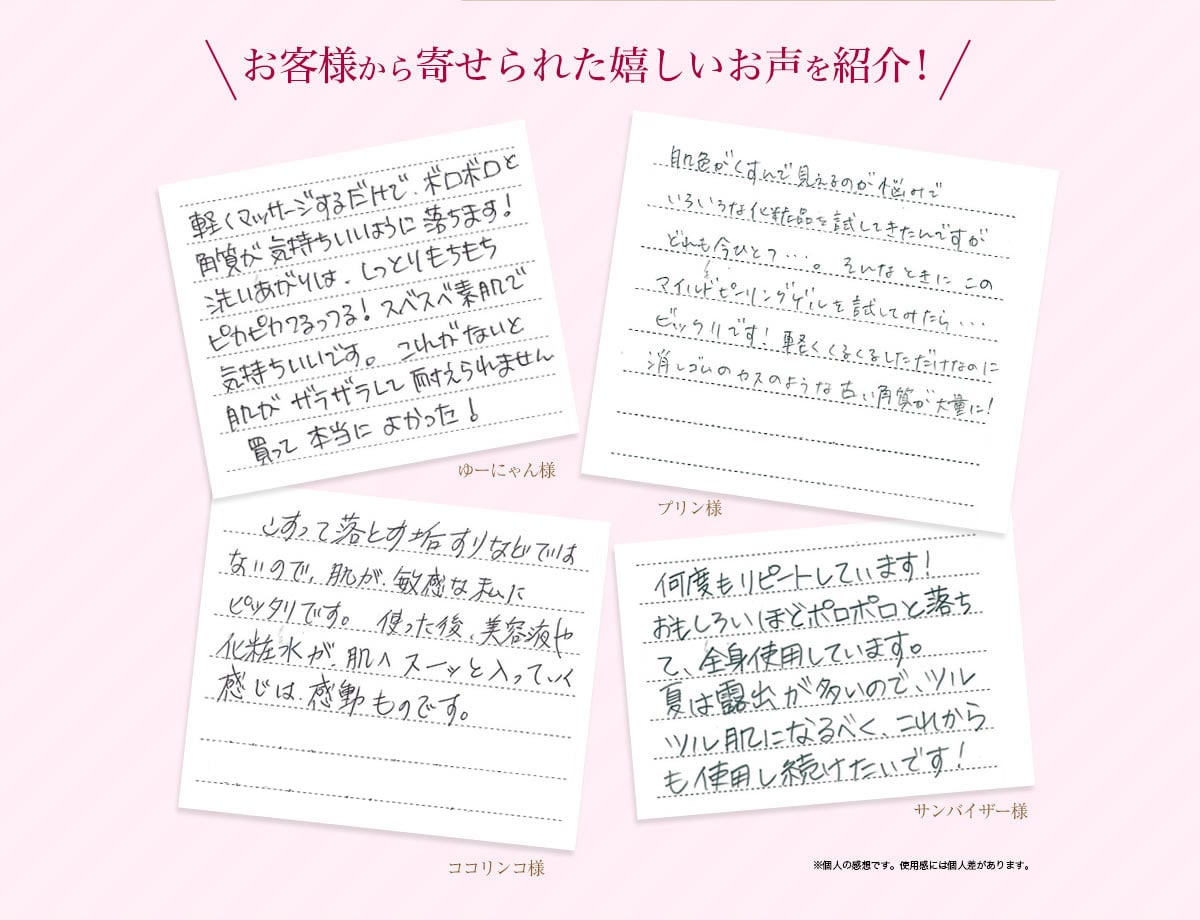 お客様から寄せられた嬉しいお声を紹介！
軽くマッサージするだけで、ボロボロと
角質が気持ちいいように落ちます！
洗いあがりは、しっとりもちもち
ピカピカてるってる！スベスベ素肌で
気持ちいいです。これがないと
肌がザラザラして耐えられません
買って本当によかった！
ゆーにゃん様
肌色がくすんで見えるのが悩みで
いろいろな化粧品を試してきたんですが
どれも今ひとつ・・・。そんなときにこの
マイルドピーリングゲルを試してみたら・・・
ビックリです！軽くくるくるしただけなのに
消しゴムのカスのような古い角質が大量に！
プリン様
こすって落とす垢すりなどでは
ないので、肌が敏感な私に
ピッタリです。使った後、美容液や
化粧水が、肌へスーッと入っていく
感じは、感動ものです。
ココリンコ様
何度もリピートしています！
おもしろいほどポロポロと落ち
て、全身使用しています。
夏は露出が多いので、ツル
ツル肌になるべく、これから
も使用し続けたいです！
サンバイザー様
※個人の感想です。使用感には個人差があります。